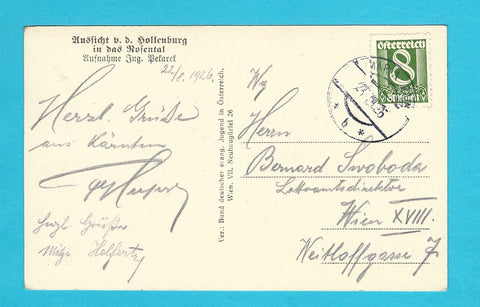 Aussicht v. d. Hollenburg
in das Rosental
Aufnahme Ing. Pekarek
22/8. 1926.
Herzl. Grüße
aus Kärnten
Herzl. Grüße
Mitzi Helfert
Ver.: Bund deutscher evang. Jugend in Österreich.
Wien, VII. Neubaugürtel 26
Österreich
8
Groschen
Herrn
Bernard Swoboda
Wien XVIII.
Weitloffgasse 7